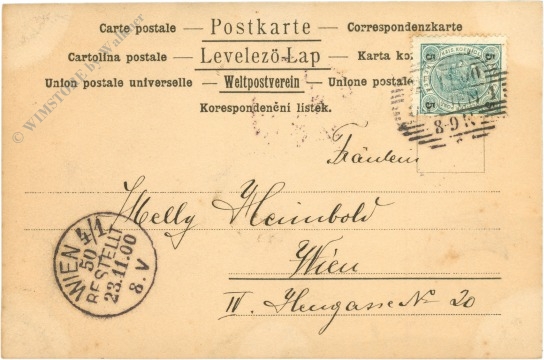 Carte postale Postkarte Correspondenzkarte
Cartolina postale Levelező-Lap Karta ko
Union postale universelle Weltpostverein Unione postale
Korespondenční lístek.
5 5
5 5
8-9
Fräulein
Helly Heimbold
Wien
IV. Heugasse No 20
WIEN 4/1
50
BESTELLT
23.11.00
8.V
© WIMSTORE by Wallner